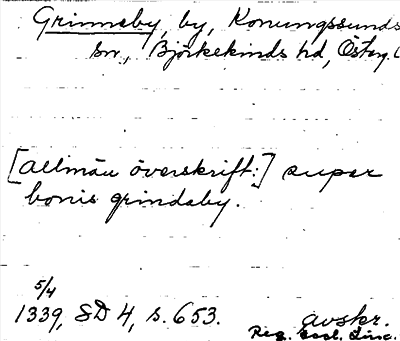 Grinneby, by, Konungssunds
sn., Björkekinds hd, Östg. L
[allmän överskrift:] super
bonis grindaby.
5/4
1339, SD 4, s. 653. avskr.
Reg. Eccl. Linc.